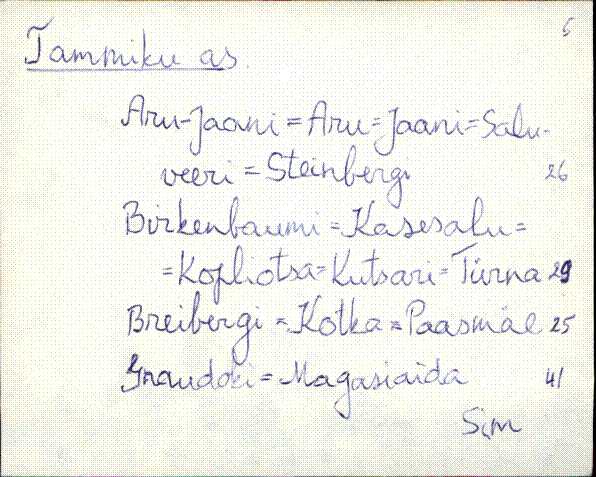 5
Tammiku as.
Aru-Jaani = Aru = Jaani = Salu-
veeri = Steinbergi 26
Birkenbaumi = Kasesalu =
= Kopliotsa = Kutsari = Türna 29
Breibergi = Kotka = Paasmäe 25
Graudoki = Magasiaida 41
Sim